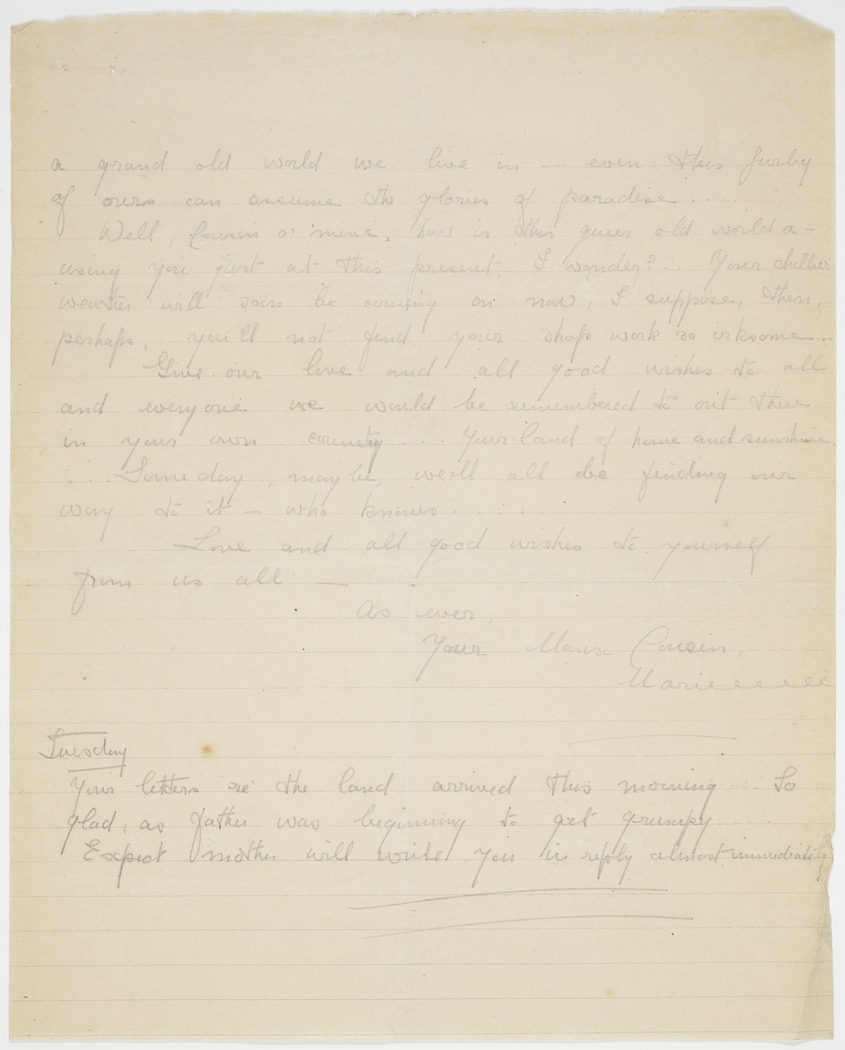 a grand old world we live in — even this
of ours can assume the glories of paradise . . . .
Well, Cousin o' mine, how is this queer old world a-
using you just at this present, I wonder? . . Your chillier
weather will soon be coming on now, I suppose, then,
perhaps, you'll not find your shop work so irksome . .
Give our love and all good wishes to all
and everyone we would be remembered to out there
in your own country . . . Your land of home and sunshine.
. . . Some day, maybe, we'll all be finding our
way to it — who knows . . . .
Love and all good wishes to yourself
from us all —
As ever,
Your Cousin,
Marie
Tuesday
Your letters re' the land arrived this morning . . So
glad, as father was beginning to get grumpy . . . .
Expect mother will write you in reply almost immediately